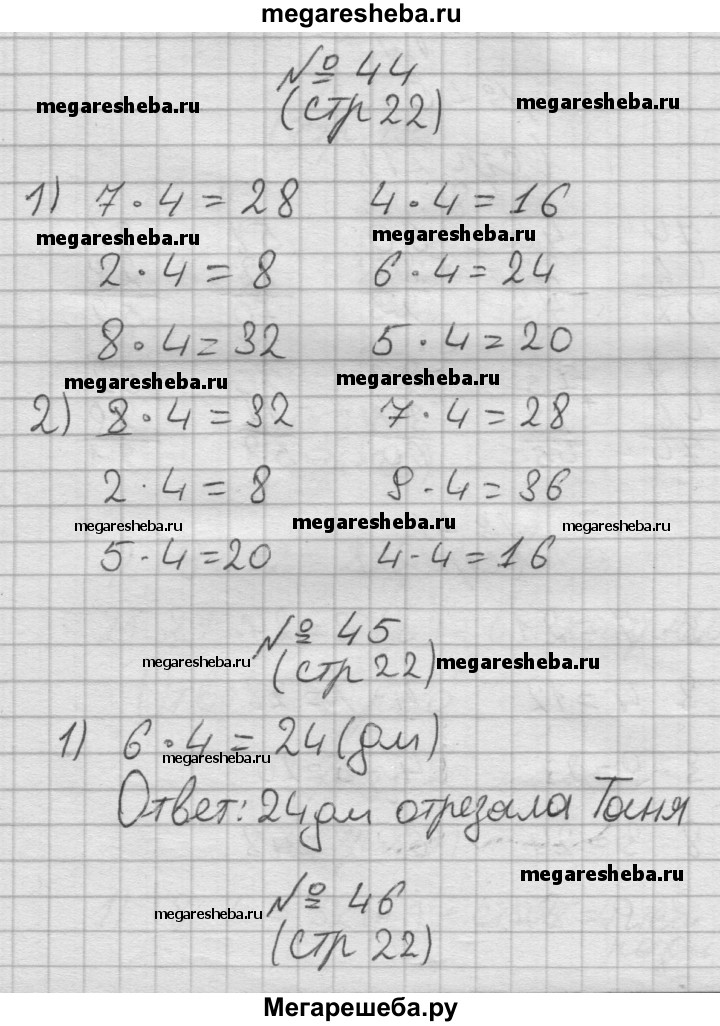 megaresheba.ru
№ 44
megaresheba.ru (стр 22) megaresheba.ru
1) 7 · 4 = 28 4 · 4 = 16
megaresheba.ru megaresheba.ru
2 · 4 = 8 6 · 4 = 24
8 · 4 = 32 5 · 4 = 20
megaresheba.ru megaresheba.ru
2) 8 · 4 = 32 7 · 4 = 28
2 · 4 = 8 9 · 4 = 36
megaresheba.ru megaresheba.ru megaresheba.ru
5 · 4 = 20 4 · 4 = 16
№ 45
megaresheba.ru (стр 22) megaresheba.ru
1) 6 · 4 = 24 (дм)
megaresheba.ru
Ответ: 24 дм отрезала Таня
megaresheba.ru
№ 46
megaresheba.ru
(стр 22)
Мегарешеба.ру